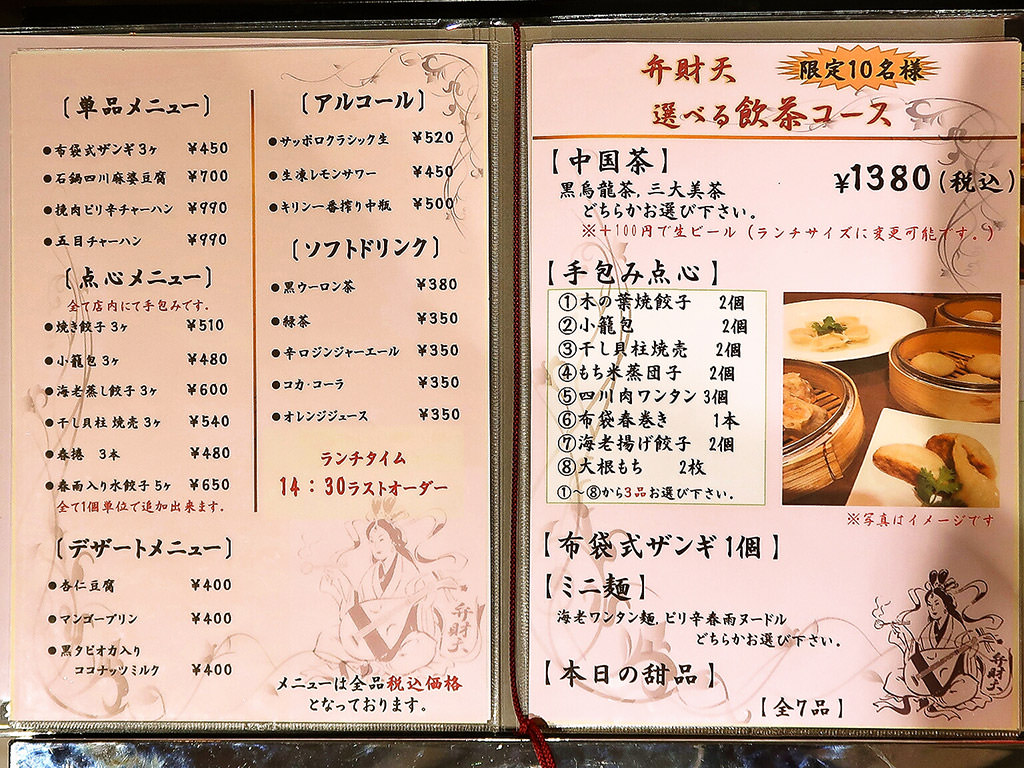 〔単品メニュー〕
●布袋式ザンギ3ヶ ¥450
●石鍋四川麻婆豆腐 ¥700
●挽肉ピリ辛チャーハン ¥990
●五目チャーハン ¥990
〔点心メニュー〕
全て店内にて手包みです。
●焼き餃子3ヶ ¥510
●小籠包3ヶ ¥480
●海老蒸し餃子3ヶ ¥600
●干し貝柱焼売3ヶ ¥540
●春捲 3本 ¥480
●春雨入り水餃子5ヶ ¥650
全て1個単位で追加出来ます。
〔デザートメニュー〕
●杏仁豆腐 ¥400
●マンゴープリン ¥400
●黒タピオカ入り
ココナッツミルク ¥400
〔アルコール〕
●サッポロクラシック生 ¥520
●生凍レモンサワー ¥450
●キリン一番搾り中瓶 ¥500
〔ソフトドリンク〕
●黒ウーロン茶 ¥380
●緑茶 ¥350
●辛口ジンジャーエール ¥350
●コカ・コーラ ¥350
●オレンジジュース ¥350
ランチタイム
14：30ラストオーダー
弁財天
メニューは全品税込価格
となっております。
弁財天 限定10名様
選べる飲茶コース
【中国茶】 ¥1380(税込)
黒烏龍茶,三大美茶
どちらかお選び下さい。
※＋100円で生ビール（ランチサイズに変更可能です。）
【手包み点心】
①木の葉焼餃子 2個
②小籠包 2個
③干し貝柱焼売 2個
④もち米蒸団子 2個
⑤四川肉ワンタン 3個
⑥布袋春巻き 1本
⑦海老揚げ餃子 2個
⑧大根もち 2枚
①～⑧から3品お選び下さい.
※写真はイメージです
【布袋式ザンギ1個】
【ミニ麺】
海老ワンタン麺,ピリ辛春雨ヌードル
どちらかお選び下さい.
【本日の甜品】
【全7品】
弁財天